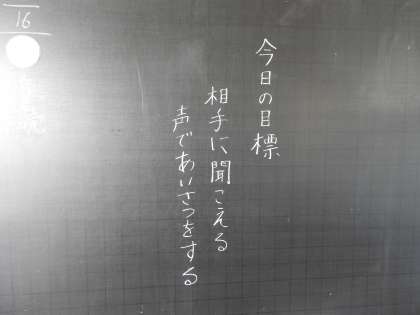 今日の目標
相手に聞こえる
声であいさつをする
16